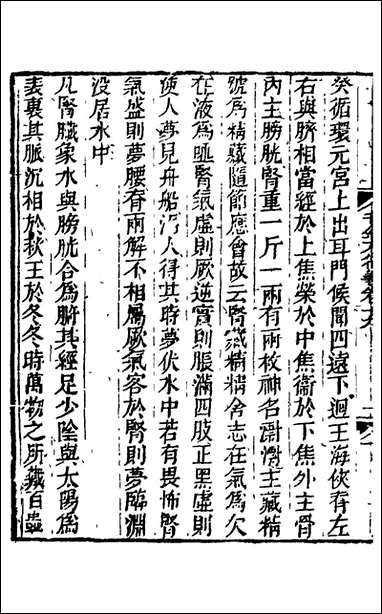 癸循環元宮上出耳門候聞四遠下迴玉海俠脊左
右與臍相當經於上焦榮於中焦衛於下焦外主骨
内主膀胱腎重一斤一兩有兩枚神名𩪘𩪘主藏精
號爲精藏隨節應會故云腎藏精精舍志在氣爲欠
在液爲唾腎氣虛則厥逆實則脹滿四肢正黑虛則
使人夢見舟船溺人得其時夢伏水中若有畏怖腎
氣盛則夢腰脊兩解不相屬厥氣客於腎則夢臨淵
没居水中
凡腎臟象水與膀胱合爲腑其經足少陰與太陽爲
表裏其脈沉相於秋王於冬冬時萬物之所藏百蟲